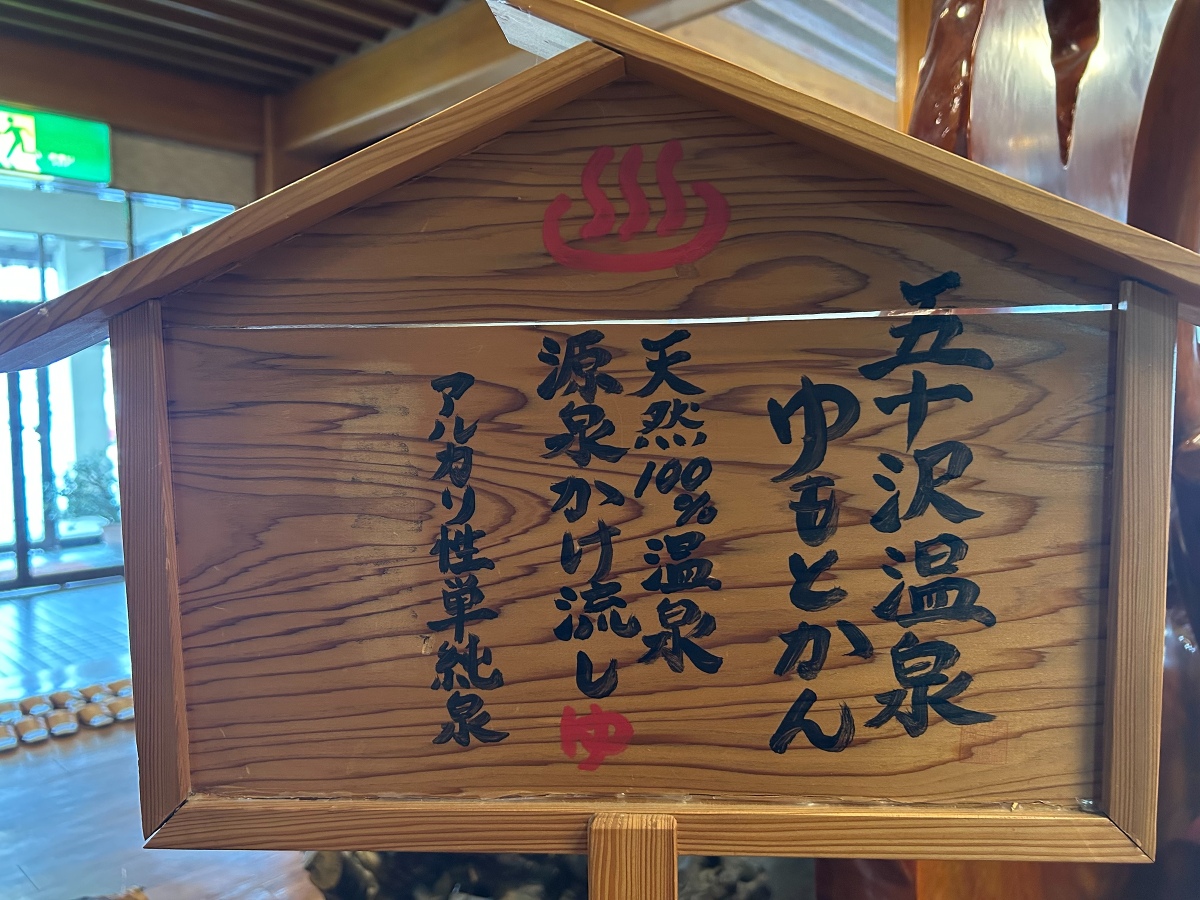 五十沢温泉
ゆもとかん
天然100%温泉
源泉かけ流し ゆ
アルカリ性単純泉